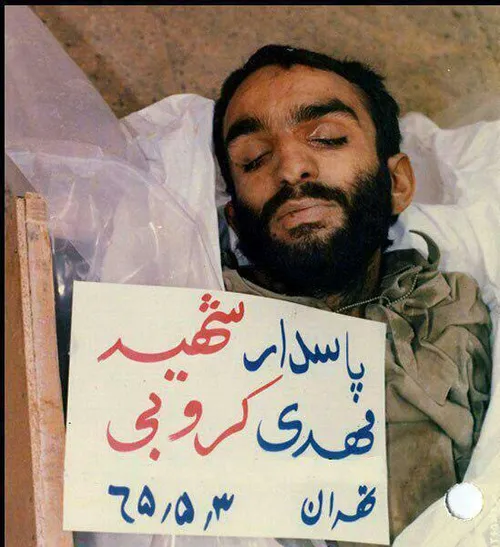 پاسدار شهید
مهدی کروبی
تهران ۶۵٫۵٫۳